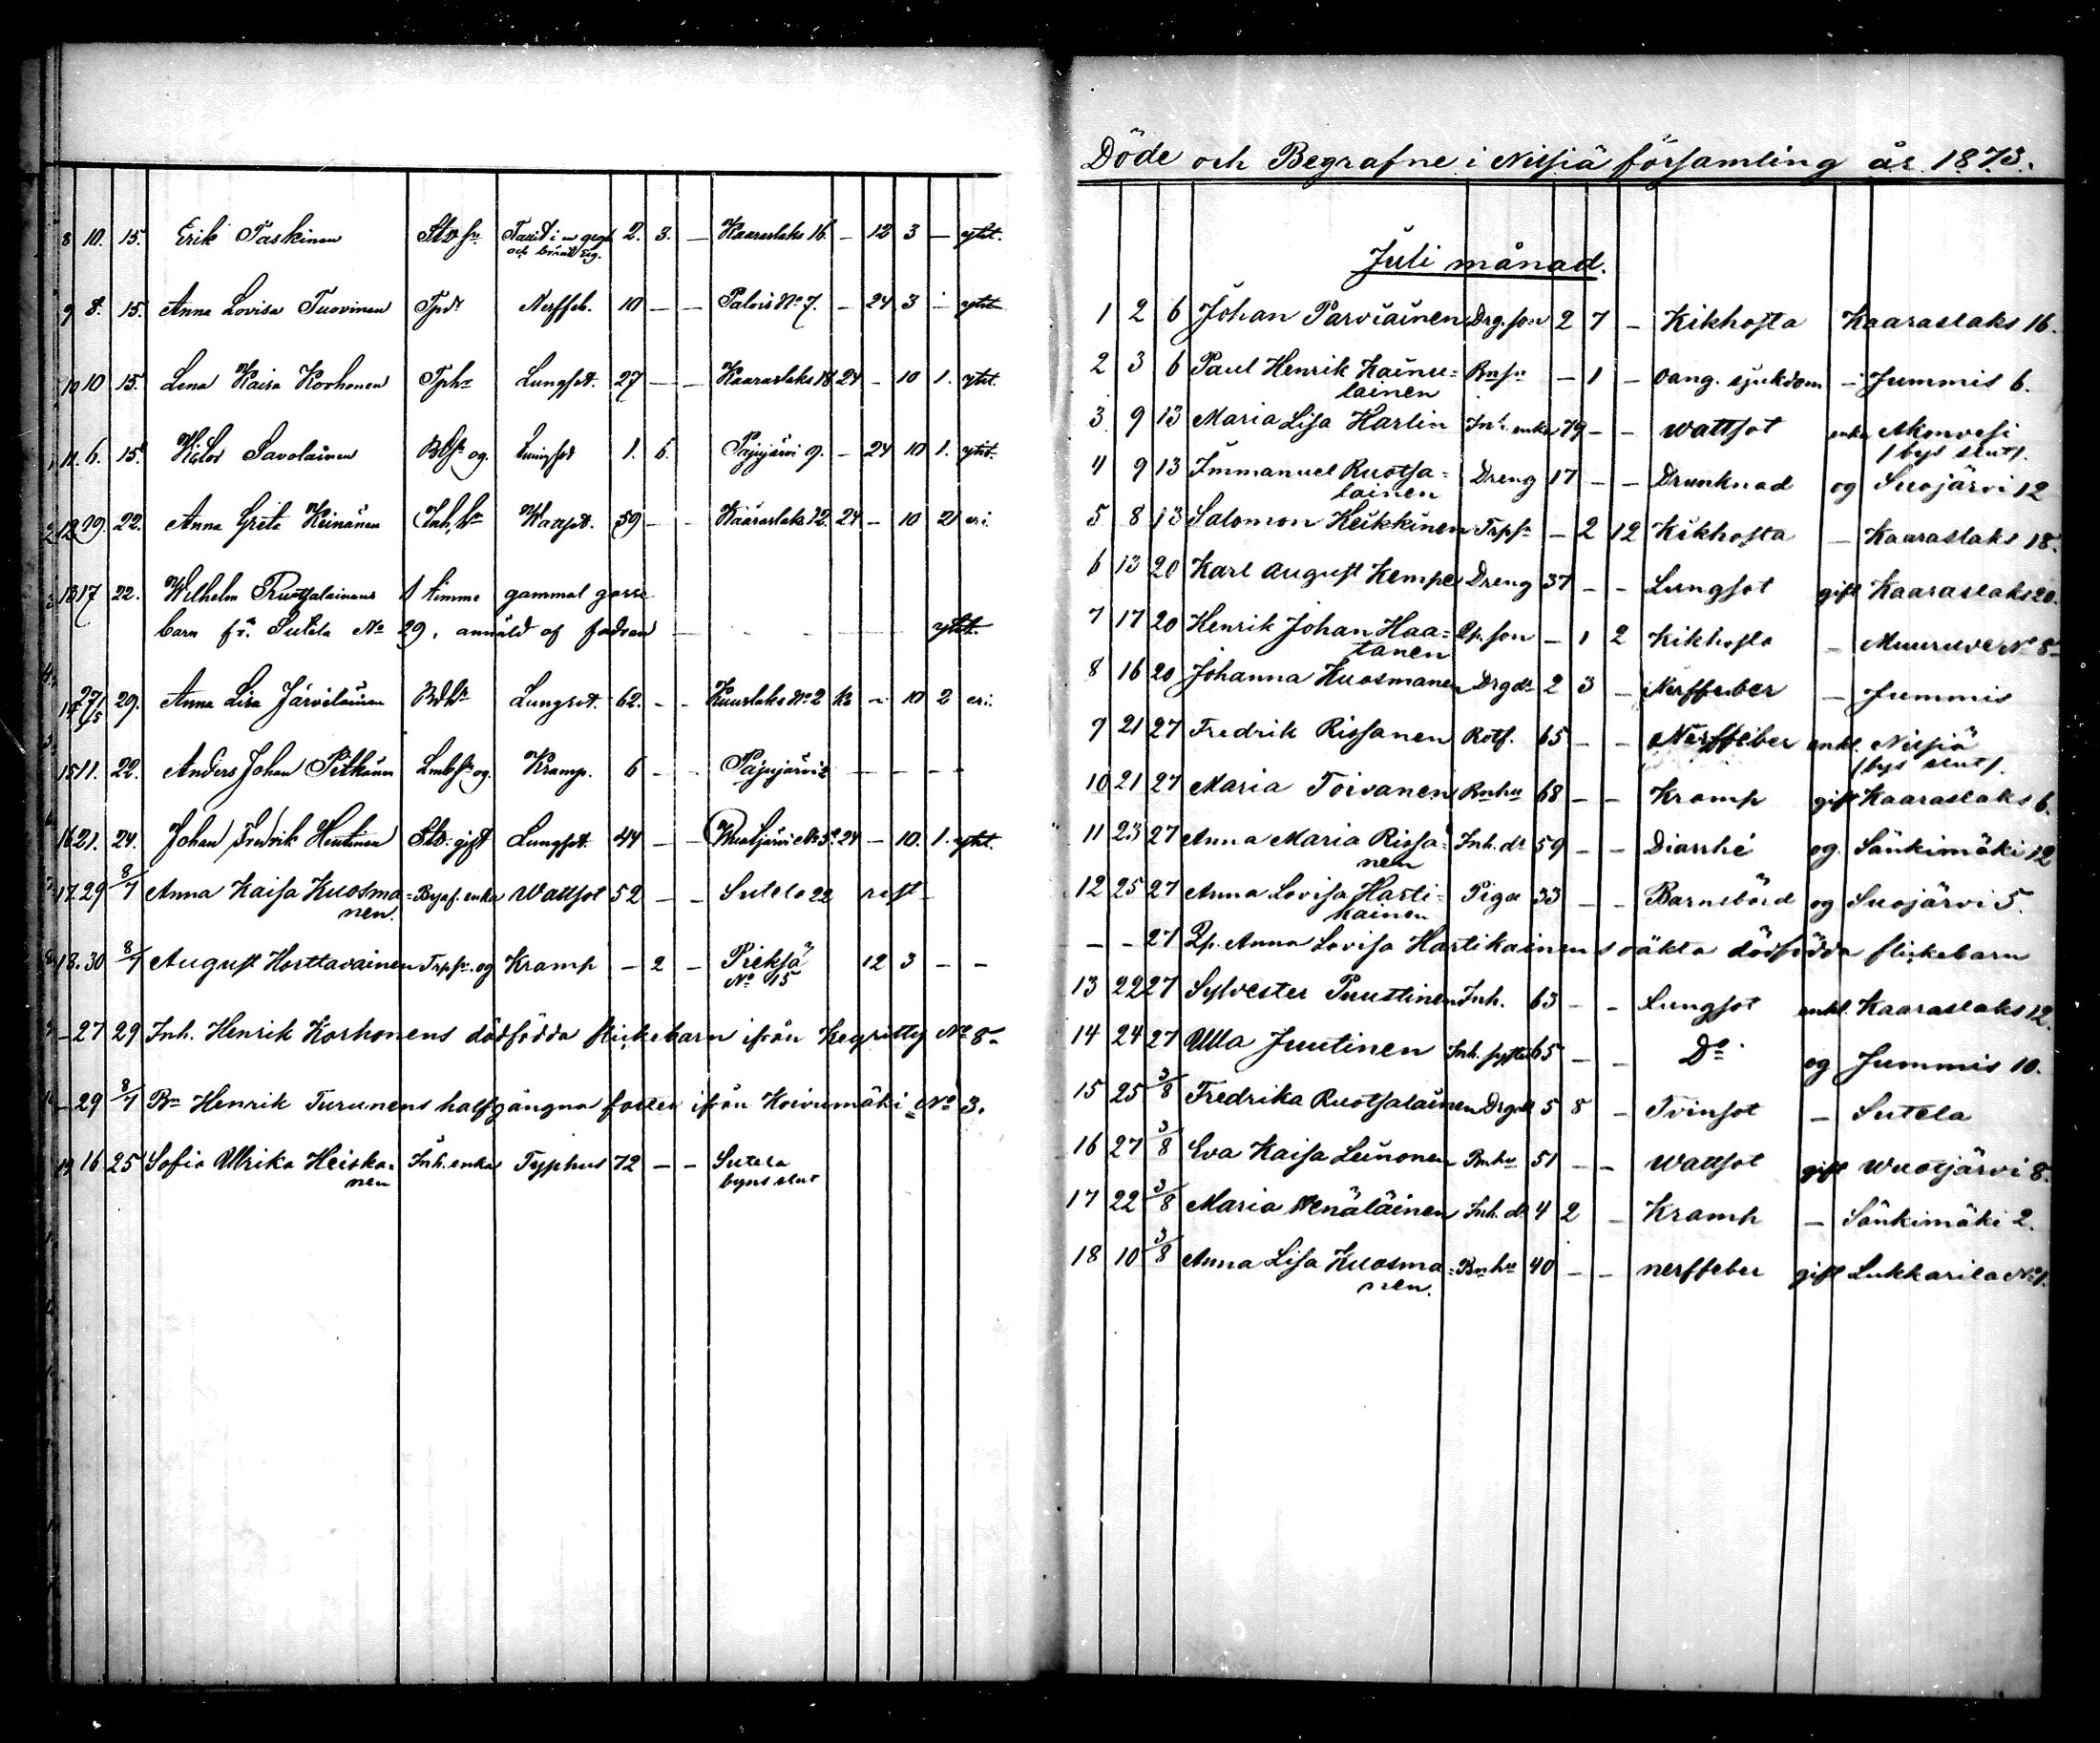 8 10. 15. Erik Taskinen Stvsn 2. 3. — Kaaraslaks 16. — 12 3 — ytst.
och bränd sig.
9 8. 15. Anna Lovisa Tuovinen Tpdr Nerffeb. 10 — — Palois No 7. — 24 3 — ytst.
10 10 15. Lena Kaisa Korhonen Tphu Lungsot. 27 — — Kaaraslaks 18 24 — 10 1. ytst.
11. 6. 15. Savolainen og. Lungsot 1. 6. Pajujärvi 9. — 24 10 1. ytst.
12 29. 22. Anna Greta Keinänen Wattsot. 59 — — Kaaraslaks 12. 24 — 10 2 eri.
13 17 22. Wilhelm Ruotsalainens 1 timme gammal gosse
barn fr. Sutela No 29, anmäld af fadren — — — — ytst.
14 27/5 29. Anna Lisa Järveläinen Lungsot. 62. — — No 2 — 10 2 eri.
15 11. 22. Anders Johan Pitkänen og. Kramp. 6 — — Pajujärvi 2 — — — —
16 21. 24. Johan Fredrik Huttunen gift Lungsot. 44 — — 24 — 10. 1. ytst.
17. 29 8/7 Anna Kaisa Kuosma= enka Wattsot 52 — — Sutela 22 rest —
nen.
18. 30 8/7 August Horttavainen Trpsn. og Kramp — 2 — Pieksä 12 3 — —
No 15
— 27 29 Inh. Henrik Korhonens dödfödda flickebarn ifrån No 8 —
— 29 8/7 Bn Henrik Turunens halfgångna foster ifrån Koivumäki No 3.
19 16 25 Sofia Ulrika Heiska= Inh. enka Typhus 72 — — Sutela
nen byns slut
Döde och Begrafne i Nilsiä församling år 1873.
Juli månad.
1 2 6 Johan Parviainen Drg. son 2 7 — Kikhosta Kaaraslaks 16.
2 3 6 Paul Henrik Kainu= Bnsn — 1 — oang. sjukdom — Jummis 6.
lainen
3 9 13 Maria Lisa Karlin Inh. enka 79 — — Wattsot enka Akonvesi
/bys slut/.
4 9 13 Immanuel Ruotsa= Dreng 17 — — Drunknad og Suojärvi 12
lainen
5 8 13 Salomon Heikkinen Trpsn — 2 12 Kikhosta — Kaaraslaks 18.
6 13 20 Karl August Kempe Dreng 37 — — Lungsot gift Kaaraslaks 20.
7 17 20 Henrik Johan Haa= Qp. son — 1 2 Kikhosta — Muuruvesi No 8 —
tanen
8 16 20 Johanna Kuosmanen Drgdr 2 3 — Nerffeber — Jummis
9 21 27 Fredrik Rissanen Rotf. 65 — — Nerffeber enkl. Nilsiä
/bys slut/.
10 21 27 Maria Toivanen Bnhu 68 — — Kramp gift Kaaraslaks 6.
11 23 27 Anna Maria Rissa= Inh. dr 59 — — Diarrhé og. Sänkimäki 12
nen
12 25 27 Anna Lovisa Harti= Piga 33 — — Barnsbörd og Suojärvi 5.
kainen
— — 27 Qp. Anna Lovisa Hartikainens oäkta dödfödda flickebarn
13 22 27 Sylvester Puustinen Inh. 63 — — Lungsot enkl. Kaaraslaks 12.
14 24 27 Ulla Juutinen Inh. syster 65 — — Do og Jummis 10.
15 25 3/8 Fredrika Ruotsalainen Drgdr 5 8 — Tvinsot — Sutela
16 27 3/8 Eva Kaisa Leinonen Bnhu 51 — — Wattsot gift Wuotjärvi 8.
17 22 3/8 Maria Wenäläinen Inh. dr 4 2 — Kramp — Sänkimäki 2.
18 10 3/8 Anna Lisa Kuosma= Bnhu 40 — — nerffeber gift Lukkarila No 1.
nen.